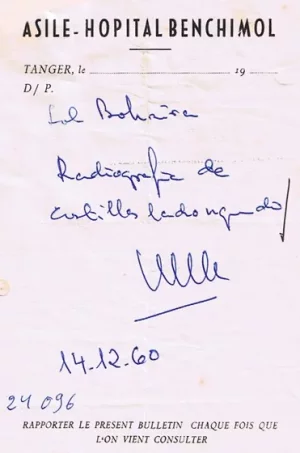 ASILE-HOPITAL BENCHIMOL
TANGER, le ........................ 19 ........
D/ P.
Bohnira
Radiografia de
costillas lado izquierdo
14.12.60
24 096
RAPPORTER LE PRESENT BULLETIN CHAQUE FOIS QUE
L'ON VIENT CONSULTER